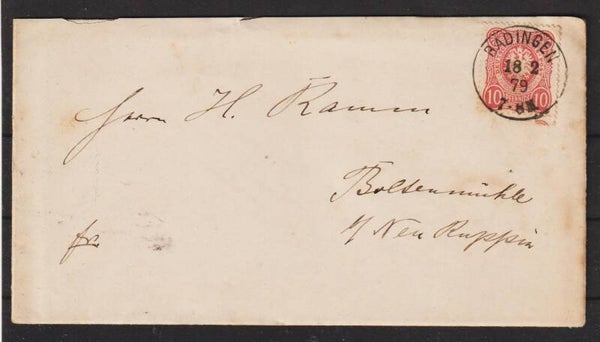 BADINGEN
18 2
79
7-8N
10 10
Herrn H. Ramm
Boltenmühle
b/ Neu Ruppin
fr.